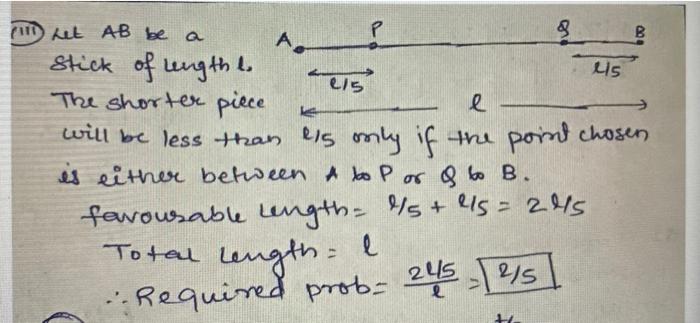 (iii) Let AB be a
A P Q B
stick of length l.
l/5 l/5
The shorter piece
l
will be less than l/5 only if the point chosen
is either between A to P or Q to B.
favourable length = l/5 + l/5 = 2l/5
Total length = l
∴ Required prob = 2l/5 / l = 2/5